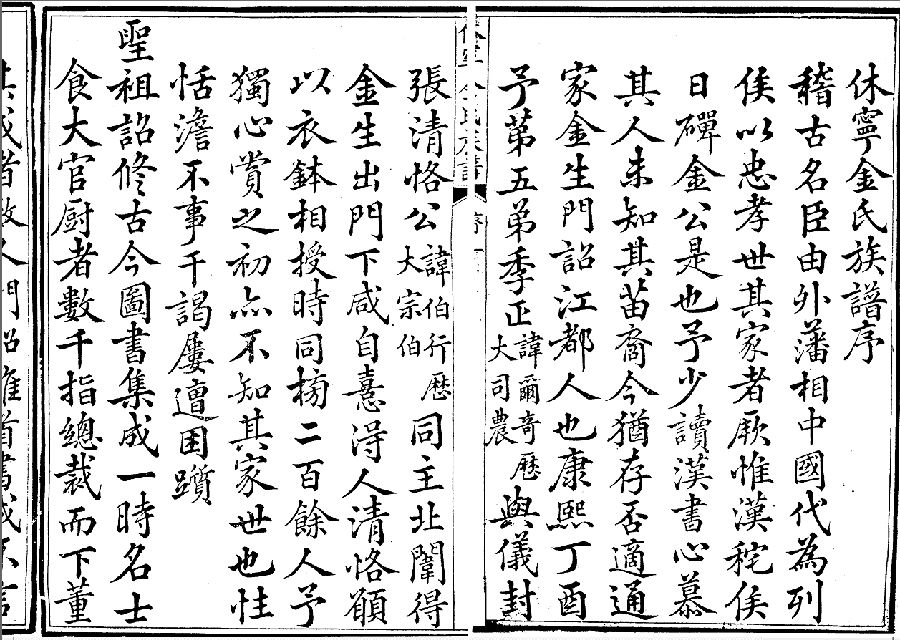 休寧金氏族譜序
稽古名臣由外藩相中國代為列
侯以忠孝世其家者厥惟漢秺侯
日磾金公是也予少讀漢書心慕
其人未知其苗裔今猶存否適通
家金生門詔江都人也康熙丁酉
予第五弟季正諱爾奇歷大司農與儀封
金氏族譜
張清恪公諱伯行歷大宗伯同主北闈得
金生出門下咸自憙得人清恪顧
以衣鉢相授時同榜二百餘人予
獨心賞之初亦不知其家世也性
恬澹不事干謁屢遭困躓
聖祖詔修古今圖書集成一時名士
食大官廚者數千指總裁而下董